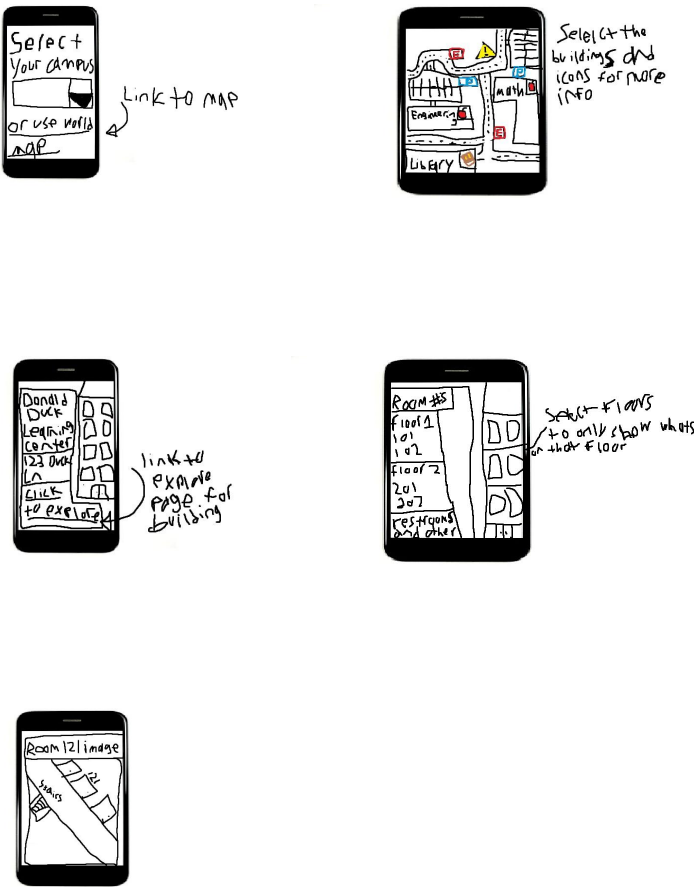 Select
your campus
or use world
map
Link to map
E
P
P
math
Engineering
E
Library
Selelct the
buildings and
icons for more
info
Donald
Duck
Learning
center
123 Duck
Ln
click
to explore
link to
explore
page for
building
Room #s
floor 1
101
102
floor 2
201
202
restrooms
and other
Select floors
to only show whats
on that floor
Room 121 image
121
stairs